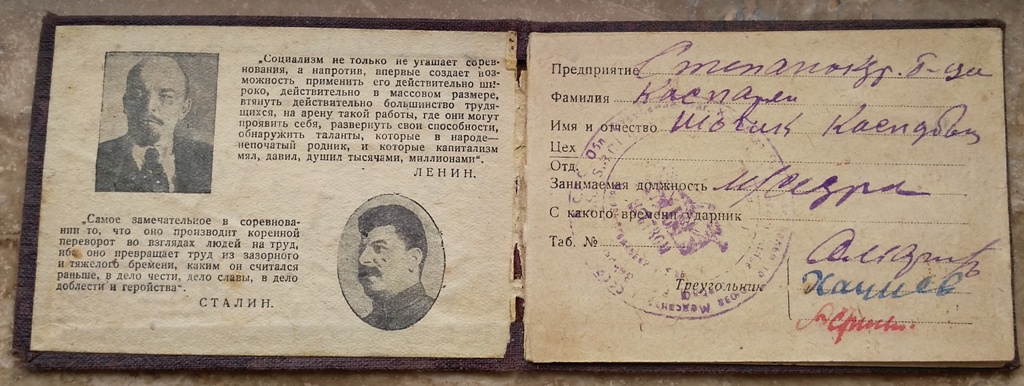 „Социализм не только не угашает сорев-
нования, а напротив, впервые создает воз-
можность применить его действительно ши-
роко, действительно в массовом размере,
втянуть действительно большинство трудя-
щихся, на арену такой работы, где они могут
проявить себя, развернуть свои способности,
обнаружить таланты, которые в народе-
непочатый родник, и которые капитализм
мял, давил, душил тысячами, миллионами“.
ЛЕНИН.
„Самое замечательное в соревнова-
нии то, что оно производит коренной
переворот во взглядах людей на труд,
ибо оно превращает труд из зазорного
и тяжелого бремени, каким он считался
раньше, в дело чести, дело славы, в дело
доблести и геройства“.
СТАЛИН.
Предприятие
Фамилия Каспарян
Имя и отчество
Цех
Отд.
Занимаемая должность
С какого времени ударник
Таб. №
Треугольник